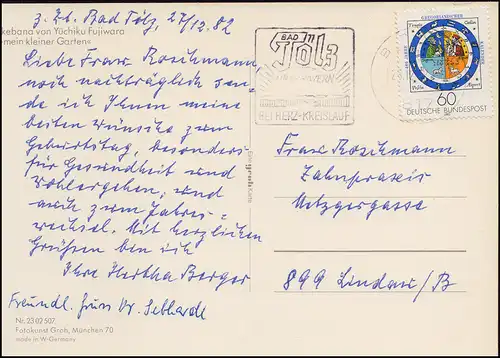 z. Zt. Bad Tölz 27/12.82
Ikebana von Yûchiku Fujiwara
»mein kleiner Garten«
Liebe Frau Roschmann
noch nachträglich sen-
de ich Ihnen meine
besten Wünsche zum
Geburtstag, besonders
für Gesundheit und
Wohlergehen, und
auch zum Jahres-
wechsel. Mit herzlichen
Grüßen bin ich
Ihre Hertha Berger
Freundl. Gruss Dr. Gebhardt
Nr. 23 02 507
Fotokunst Groh, München 70
made in W-Germany
groh Karte
BAD
Tölz
BEI HERZ-KREISLAUF
60
DEUTSCHE BUNDESPOST
Frau Roschmann
Zahnpraxis
Metzgergasse
899 Lindau/B